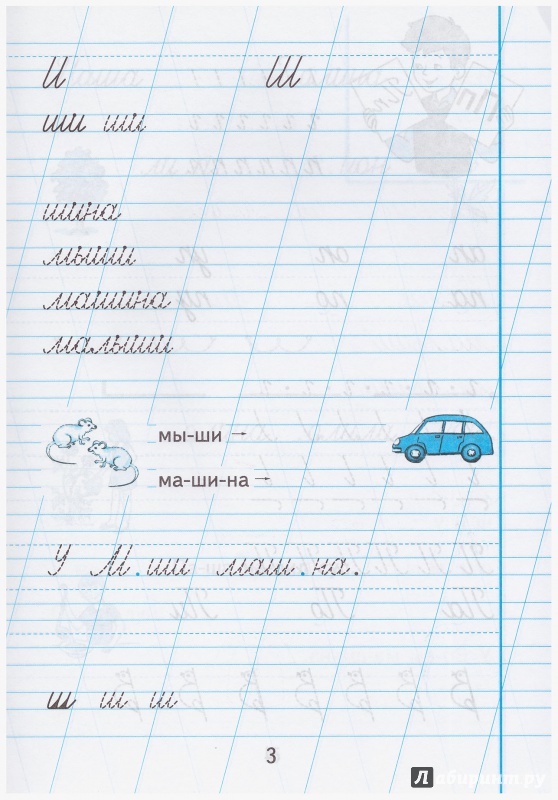 И Ш
ши ши
шина
мыши
машина
малыши
мы-ши →
ма-ши-на →
У М.ши маш.на.
ш ш ш
3
Лабиринт.ру